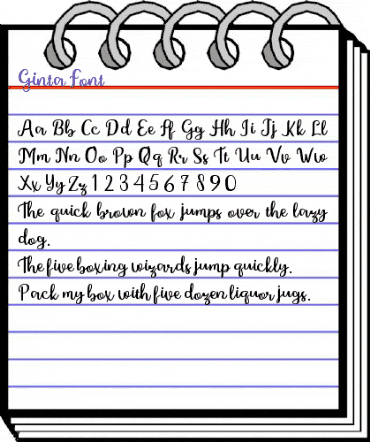 Ginta Font
Aa Bb Cc Dd Ee Ff Gg Hh Ii Jj Kk Ll
Mm Nn Oo Pp Qq Rr Ss Tt Uu Vv Ww
Xx Yy Zz 1 2 3 4 5 6 7 8 9 0
The quick brown fox jumps over the lazy
dog.
The five boxing wizards jump quickly.
Pack my box with five dozen liquor jugs.